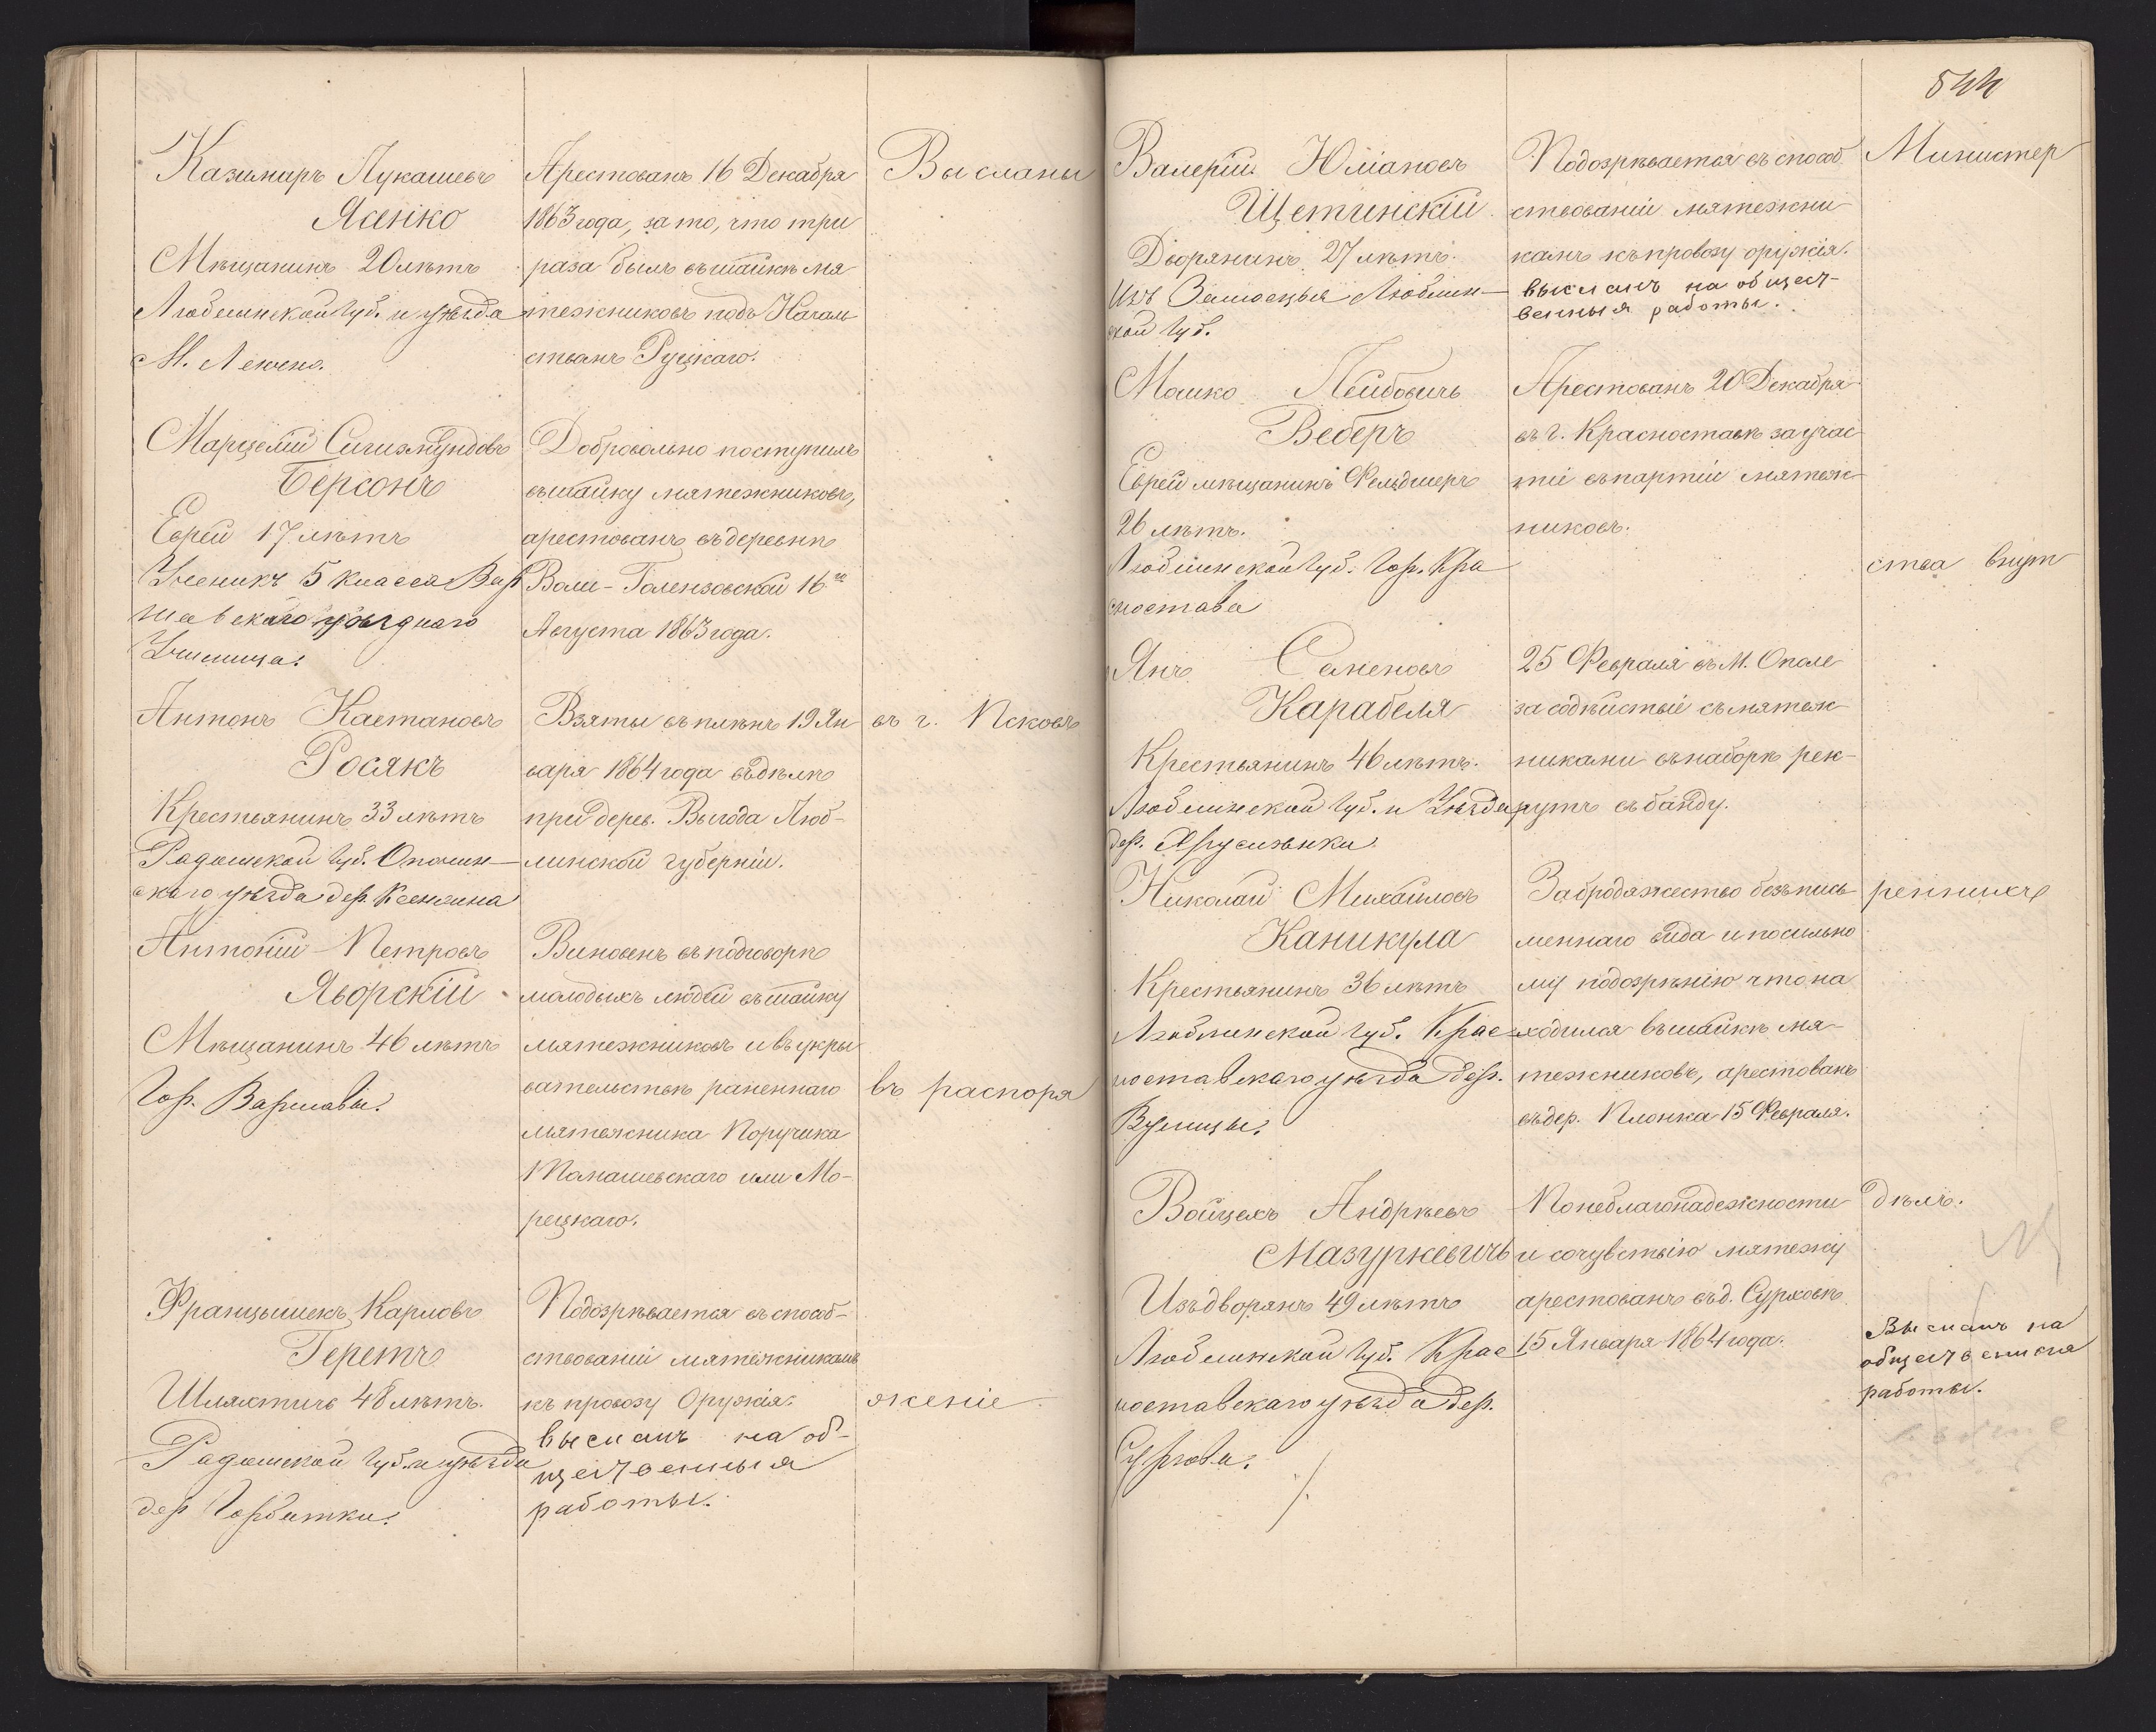 Казимиръ Лукашевъ
Ясенко
Мѣщанинъ 20 лѣтъ
Люблинской Губ. и уѣзда
М. Ленчно.
Арестованъ 16 Декабря
1863 года, за то, что три
раза былъ въ шайкѣ мя
тежниковъ подъ Началь
ствомъ Руцкаго.
Высланы
Марцелій Сигизмундовъ
Берсонъ
Еврей 17 лѣтъ
Ученикъ 5 класса Вар
шавскаго уѣзднаго
Училища.
Добровольно поступилъ
въ шайку мятежниковъ,
арестованъ въ деревнѣ
Воли-Галензовской 16го
Августа 1863 года.
Антонъ Каетановъ
Росякъ
Крестьянинъ 33 лѣтъ
Радомской Губ. Опочин-
скаго уѣзда дер.
Взяты въ плѣнъ 19 Ян
варя 1864 года въ дѣлѣ
при дерев. Выгода Люб-
линской губерніи.
въ г. Псковъ
Антоній Петровъ
Яворскій
Мѣщанинъ 46 лѣтъ
Гор. Варшавы.
Виновенъ въ подговорѣ
молодыхъ людей въ шайку
мятежниковъ и въ укры
вательствѣ раненнаго
мятежника Поручика
Танашевскаго или Мо-
рецкаго.
въ распоря
Францышекъ Карловъ
Геретъ
Шляхтичъ 48 лѣтъ.
Радомской Губ. и уѣзда
дер Горбатки.
Подозрѣвается въ спосб-
ствованіи мятежникамъ
къ провозу Оружія.
высланъ на об-
щественныя
работы.
женіе
544
Валерій Юліановъ
Щетинскій
Дворянинъ 27 лѣтъ.
Изъ Замосцья Люблин-
ской Губ.
Подозрѣвается въ способ
ствованіи мятежни
камъ къ провозу оружія.
высланъ на общест-
венныя работы.
Министер
Мошко Лейбовичъ
Веберъ
Еврей мѣщанинъ Фельдшеръ
26 лѣтъ.
Люблинской Губ. Гор. Кра
сностава
Арестованъ 20 Декабря
въ г. Красноставѣ за учас
тіе въ партіи мятеж
никовъ.
ства внут
Янъ Семеновъ
Карабеля
Крестьянинъ 46 лѣтъ.
Люблинской Губ. и Уѣзда
дер.
25 Февраля въ М. Ополе
за содѣйствіе съ мятеж
никами въ наборѣ рек-
рутъ въ банду.
Николай Михайловъ
Каникула
Крестьянинъ 36 лѣтъ
Люблинской Губ. Крас-
ноставскаго уѣзда дер.
За бродяжество безъ пись
меннаго вида и по сильно
му подозрѣнію что на
ходился въ шайкѣ мя-
тежниковъ, арестованъ
въ дер. Плонка 15 Февраля.
реннихъ
Войцехъ Андрѣевъ
Мазуркевичъ
Изъ дворянъ 49 лѣтъ
Люблинской Губ. Крас
ноставскаго уѣзда дер.
Сурхова.
По неблагонадежности
и сочувствію мятежу
арестованъ въ д. Сурховѣ
15 Января 1864 года.
дѣлъ.
Высланъ на
общественныя
работы.